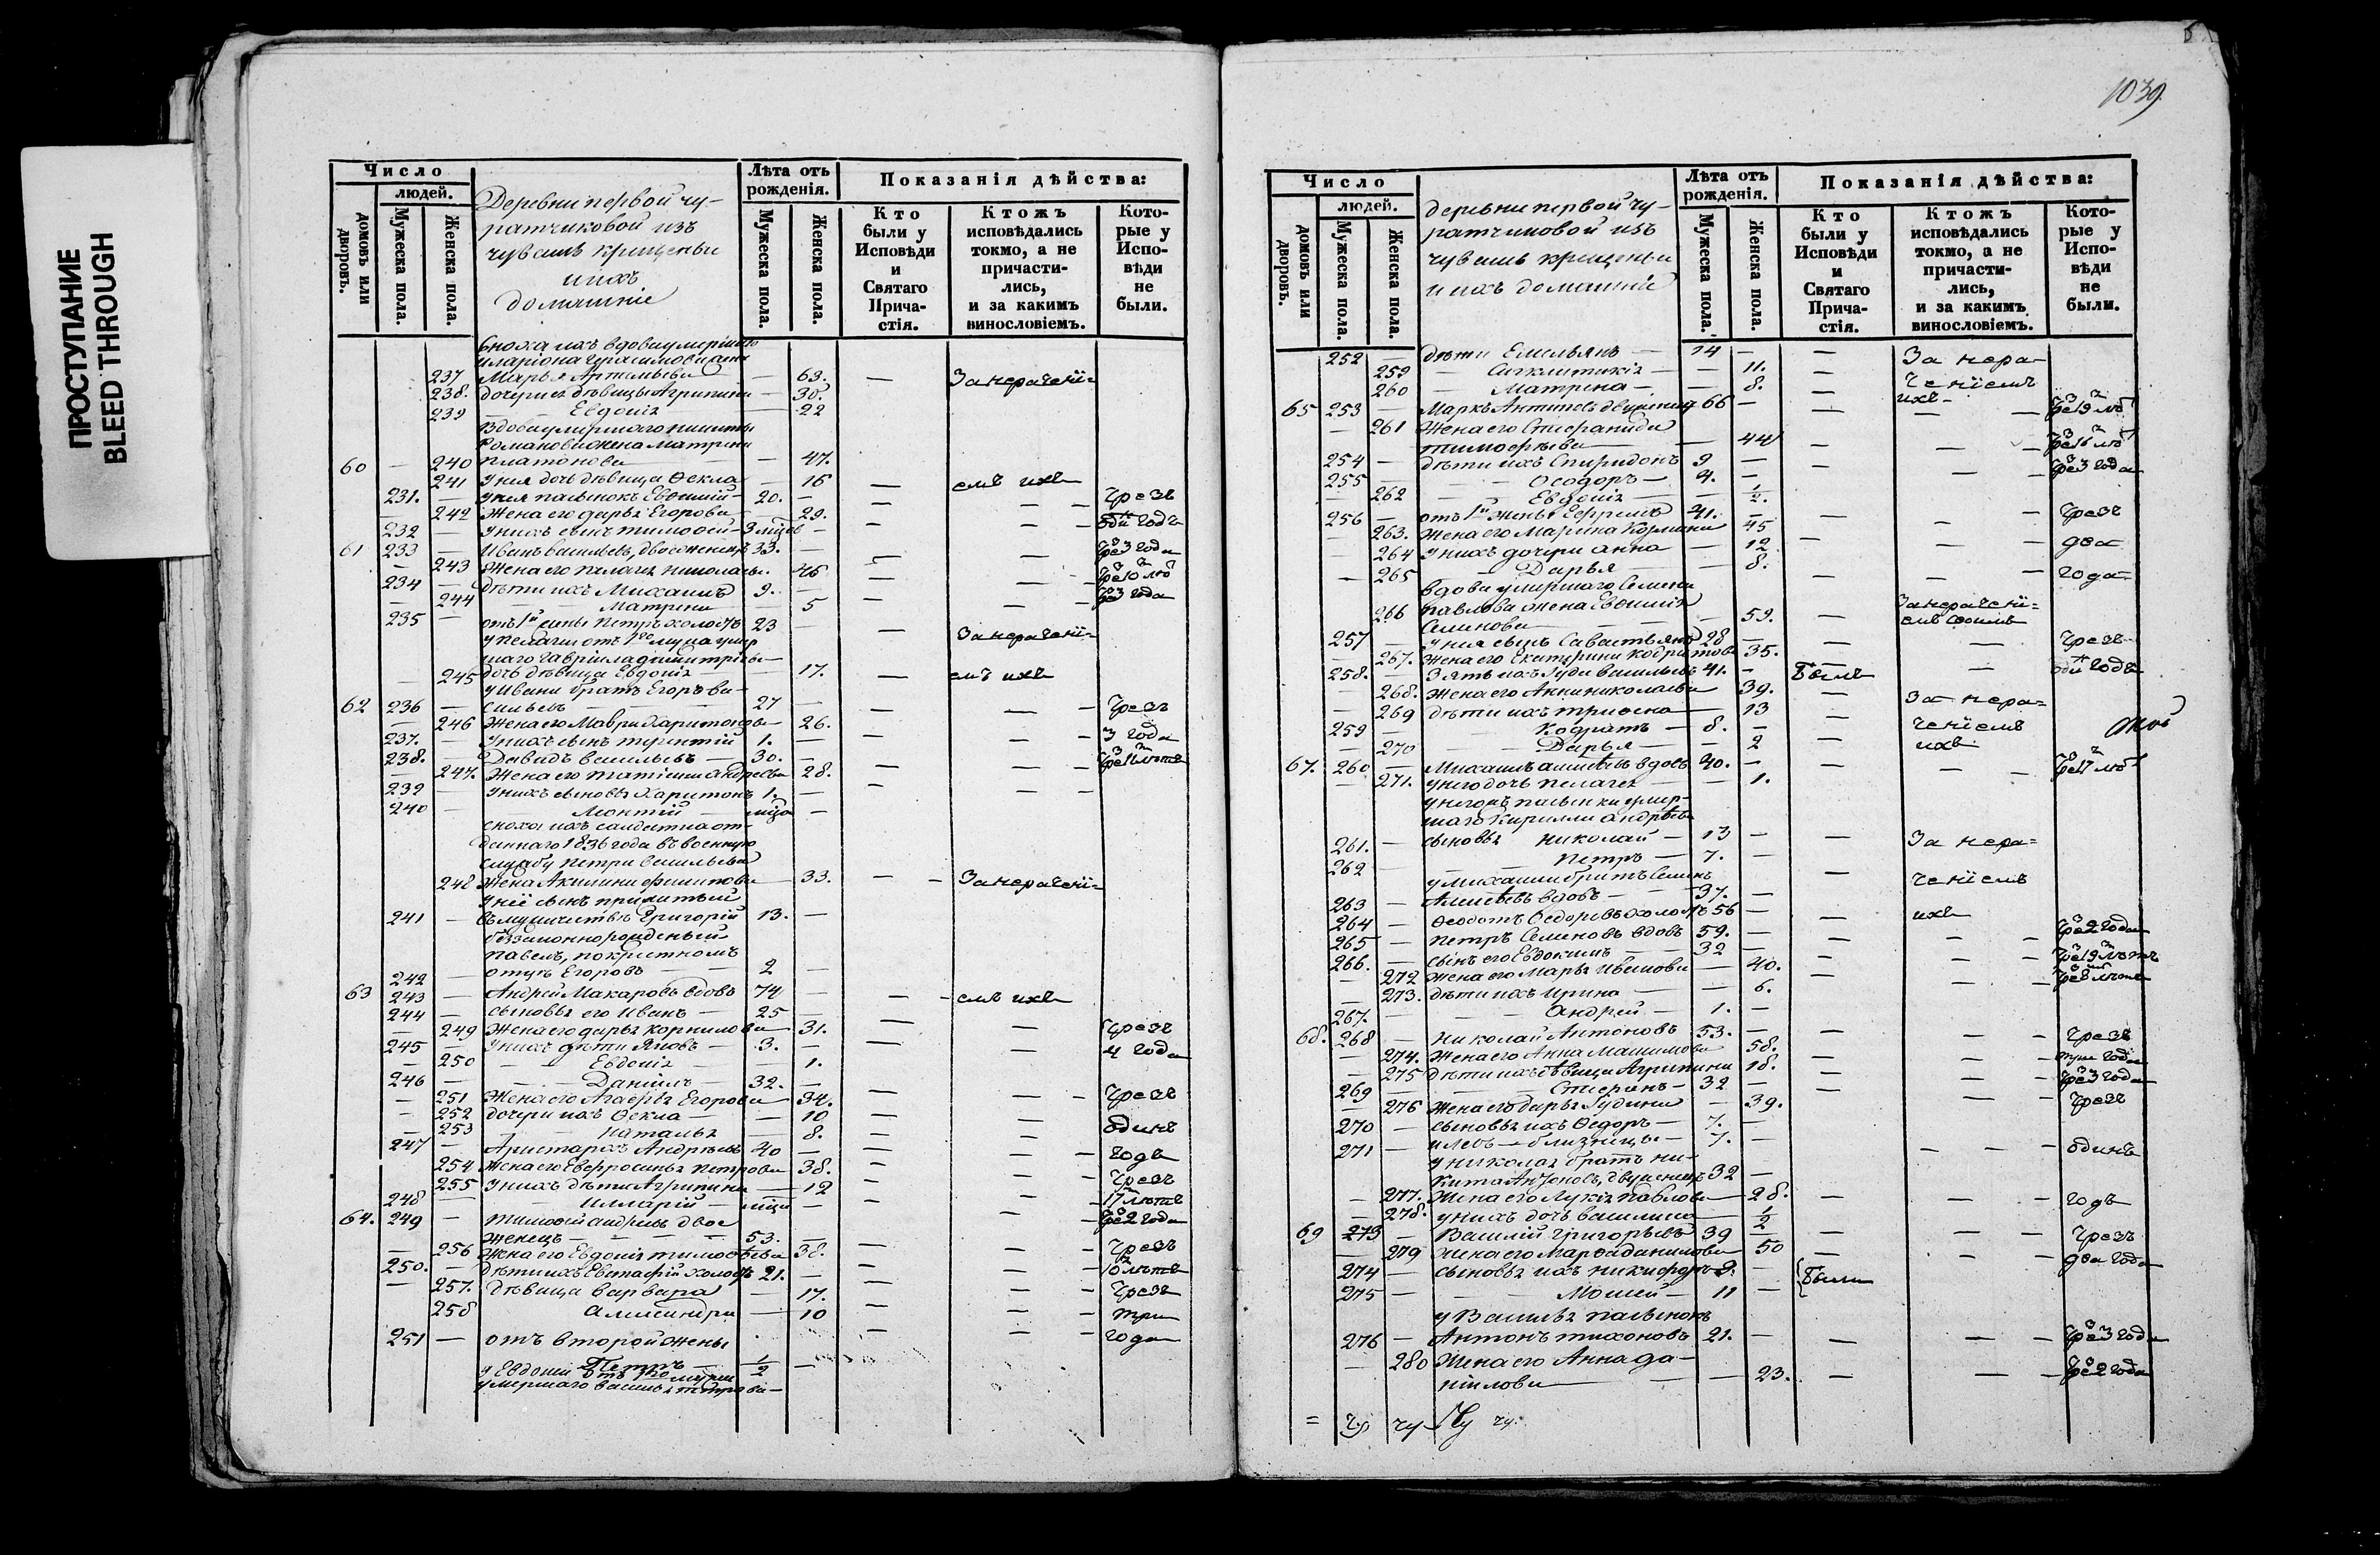 ПРОСТУПАНИЕ
BLEED THROUGH
Число
людей.
домовъ или дворовъ.
Мужеска пола.
Женска пола.
Деревни первой чу-
ратчиковой изъ
чувашъ крещены
ихъ
домашніе
Лѣта отъ рожденія.
Мужеска пола.
Женска пола.
Показанія дѣйства:
Кто были у Исповѣди и Святаго Прича-стія.
Ктожъ исповѣдались токмо, а не причасти-лись, и за какимъ винословіемъ.
Кото-рые у Испо-вѣди не были.
сноха ихъ вдова умершаго
Иларіона Герасимова жена
237 Марья Артемьева — 63. — За нерачені=
238. дочери ея дѣвицы Агрипина — 30.
239 Евдокія 22
вдова умершаго никиты
Романова жена Матрена
60 — 240 платонова — 47.
241 У нея дочь дѣвица Ѳекла — 16 — емъ ихъ
231. — У нея пасынокъ Евѳимій 20. — Чрезъ
242 Жена его дарья Егорова — 29. — годъ
232 — У нихъ сынъ тимоѳей 3 мѣсев
61 233 — Иванъ васильевъ, двоеженецъ 33. — 3 года
243 Жена его пелагея николаева 46 — 10 лѣ
234 — дѣти ихъ Михаилъ 9. — 3 года
244 Матрена — 5
235 — отъ 1й жены Петръ холостъ 23 — За нерачені=
у пелагеи отъ 1го мужа умер
шаго Гавріила дмитріева
245 дочь дѣвица Евдокія — 17. — емъ ихъ
у Ивана братъ Егоръ ва-
62 236 — сильевъ 27 — Чрезъ
246 Жена его Мавра Харитонова 26. — 3 года
237. — У нихъ сынъ терентій 1. —
238. — Давидъ васильевъ 30. —
247. Жена его татіана андреева 28. —
239 — У нихъ сыновья Харитонъ 1. —
240 — Леонтій мѣсца —
сноха ихъ солдатка от-
даннаго 1836 года въ военную
службу петра васильева
248 Жена Акилина филипова — 33. — За нерачені=
У неё сынъ прижитый
241 — въ мужествѣ Григорій 13. —
беззаконнорожденный
павелъ, по крестномъ
242 — отцѣ Егоровъ — 2 —
63 243 — Андрей Макаровъ вдовъ 74 — емъ ихъ
244 — сыновья его Иванъ 25 —
249 Жена его дарья корнилова — 31. — Чрезъ
245 — У нихъ дѣти Яковъ 3. — 4 года
250 Евдокія — 1.
246 — Даніилъ 32. —
251 Жена его Агафья Егорова 34. — Чрезъ
252 дочери ихъ Ѳекла — 10
253 наталья — 8. — одинъ
247 — Аристархъ Андреевъ 40 — годъ
254 Жена его Евфросинья петрова 38. — Чрезъ
255 У нихъ дѣти Агрипина — 12 — 17 лѣтъ
248 Илларій мѣсца —
64. 249 — тимоѳей андреевъ двое — 2 года
женецъ — 53. — Чрезъ
256 Жена его Евдокія тимоѳеева 38. — 10 лѣтъ
250. — дѣти ихъ Евстафій холостъ 21. — Чрезъ
257. дѣвица варвара — 17. — три
258 александра — 10 — года
251 — отъ второй жены
Петръ ½ —
у Евдокіи отъ 1го мужа
умершаго василья петрова
1039
Число
людей.
домовъ или дворовъ.
Мужеска пола.
Женска пола.
деревни первой чу-
ратчиковой изъ
чувашъ крещены
и ихъ домашніе
Лѣта отъ рожденія.
Мужеска пола.
Женска пола.
Показанія дѣйства:
Кто были у Исповѣди и Святаго Прича-стія.
Ктожъ исповѣдались токмо, а не причасти-лись, и за какимъ винословіемъ.
Кото-рые у Испо-вѣди не были.
252 — дѣти Емельянъ — 14 — За нера-
259 Сигклитикія — 11. — ченіемъ
260 Матрена — 8. — ихъ
65 253 — Маркъ Антиповъ двуженецъ 66 — 19 лѣ
261 Жена его Стефанида
тимофѣева — 44 — 16 лѣ
254 — дѣти ихъ Спиридонъ 9 — 3 года
255 — Ѳеодоръ 4. —
262 Евдокія — ½.
256 — отъ 1й жены Ефремъ 41. — Чрезъ
263. Жена его Марина Кормана 45
264 У нихъ дочери анна — 12 — два
265 Дарья — 8.
вдова умершаго Семена — года
266 павлова жена Евѳимія — За нерачені=
Семенова — 59. — емъ своимъ
257 — У нея сынъ Савастьянъ 28 — Чрезъ
267. Жена его Екатерина кодратова 35. — годъ
258. — Зять ихъ Гуда васильевъ 41. — Былъ
268. Жена его Анна николаева 39. — За нера=
269 дѣти ихъ — 13 — ченіемъ
259 — Кодратъ 8. — ихъ
270 Дарья — 2
67. 260 — Михаилъ алексѣевъ вдовъ 40. — 17 лѣ
271. У него дочь пелагея — 1.
у него жъ пасынки умер-
шаго Кирилла андрѣева
261. — сыновья николай 13 — За нера=
262 — петръ 7. —
у михаила братъ Семенъ — ченіемъ
263 — Алексѣевъ вдовъ 37. —
264 — Ѳеодотъ Ѳедоровъ холостъ 56 — ихъ — 2 года
265 — петръ Семеновъ вдовъ 59. — 19 лѣтъ
266. — сынъ его Евдокимъ 32 — 8 лѣтъ
272 Жена его Марья Иванова — 40.
273. дѣти ихъ Ирина — 6.
267. — Андрей 1. —
68. 268 — николай Антоновъ 53. — Чрезъ
274. Жена его Анна Макимова 58. — три года
275 дѣти ихъ дѣвица Агрипина 18. — 3 года
269 Стефанъ 32 — Чрезъ
276 Жена его дарья Гудина — 39.
270 — сыновья ихъ Ѳедоръ 7. —
271 — илевъ — близнецы 7. — одинъ
у николая братъ ни-
кита Антоновъ, двуженецъ 32 —
277. Жена его Лукія павлова — 28. — годъ
278. у нихъ дочь василиса — ½
69 273 — Василій григорьевъ 39 — Чрезъ
279 Жена его Марѳа данилова 50 — два года
274 — сыновья ихъ никифоръ 9. — Были
275 — Мокей 11 —
у Василья пасынокъ
276 — Антонъ тихоновъ 21. — 3 года
280 Жена его Анна да-
нилова — 23. — 2 года